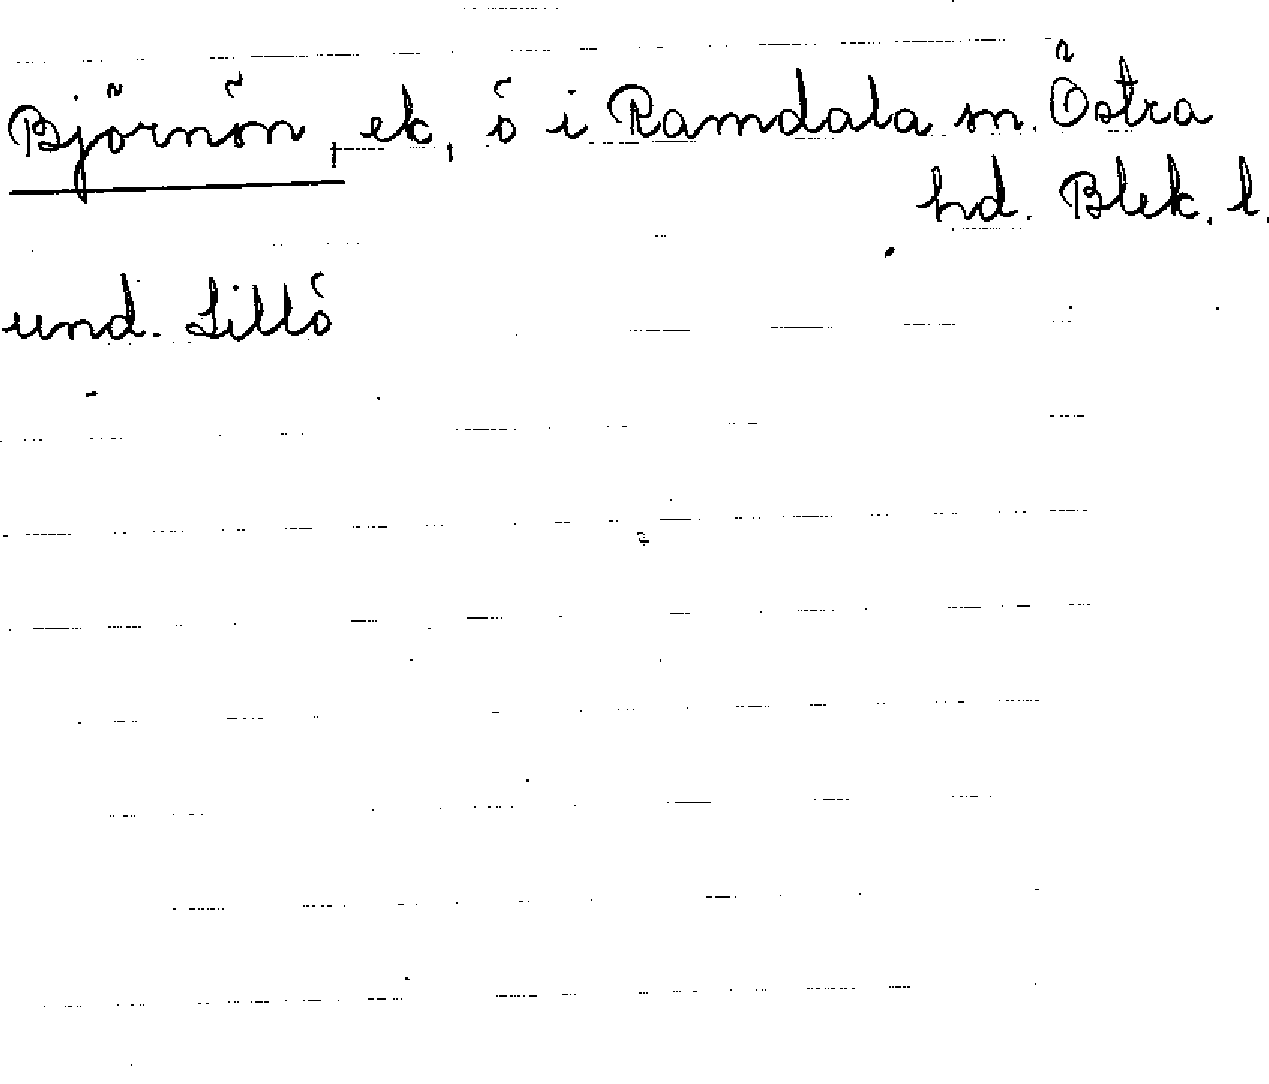 Björnön, ek, ö i Ramdala sn. Östra
hd. Blek. l.
und. Lillö